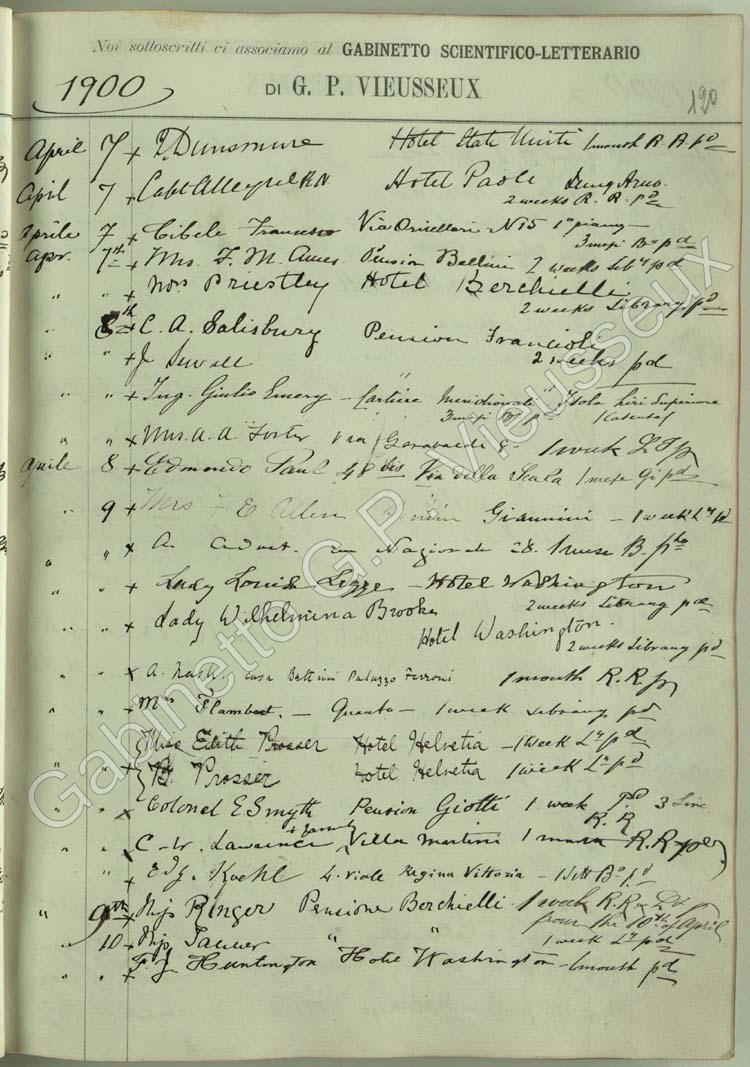 Noi sottoscritti ci associamo al GABINETTO SCIENTIFICO-LETTERARIO
1900 DI G. P. VIEUSSEUX 120
April 7 + Dunsmure Hotel Stati Uniti 1 month R. R. pd
April 7 + Capt Alleyne RN Hotel Paoli Lung Arno.
2 weeks R. R. pd
Aprile 7 + Cibele Via Oricellari N 15 1o piano
3 mesi Bo pd
Apr. 7th + Mrs. F. M. Ames Pension Bellini 2 weeks Liby pd
" " + Priestley Hotel Berchielli
2 weeks Library pd
" 8th + C. A. Salisbury Pension Francioli
" " + J. Sewall " 2 weeks pd
" " + Ing. Giulio Emery - Cartiere Meridionali - Isola Liri Superiore
3 mesi pd (Caserta)
" " + Mrs. A. A. Foster Via Garabaldi 1 week
Aprile 8 + Edmondo Paul 48 bis Via della Scala 1 mese pd
" 9 + Mrs E Allen Giannini - 1 week Ly pd
" " x A. Nazionale 28. 1 mese B.
" " + Lady Louisa Legge - Hotel Washington
2 weeks Library pd
" " + Lady Wilhelmina Brooke
Hotel Washington.
2 weeks Library pd
" " x A. Nash. Casa Battini Palazzo Ferroni 1 month R. R.
" " + Mrs Flambert. - Quanto - 1 week Library pd
" " + Miss Edith Prosser Hotel Helvetia - 1 week Ly pd
" " + Prosser Hotel Helvetia 1 week Ly pd
" " x Colonel E Smyth Pension Giotti 1 week pd
R. R
" " x C. W. Lawrence + family Villa Martini 1 R. R pd
" " + Edg. Koehl 4. Viale Regina Vittoria - 1 Sett Bo pd
" 9th + Miss Ringer Pensione Berchielli 1 week R.R
from the 10th of April
" 10 + Miss Tanner " " 1 week Ly pd
" " + F. J. Huntington Hotel Washington - 1 month pd
Gabinetto G.P. Vieusseux